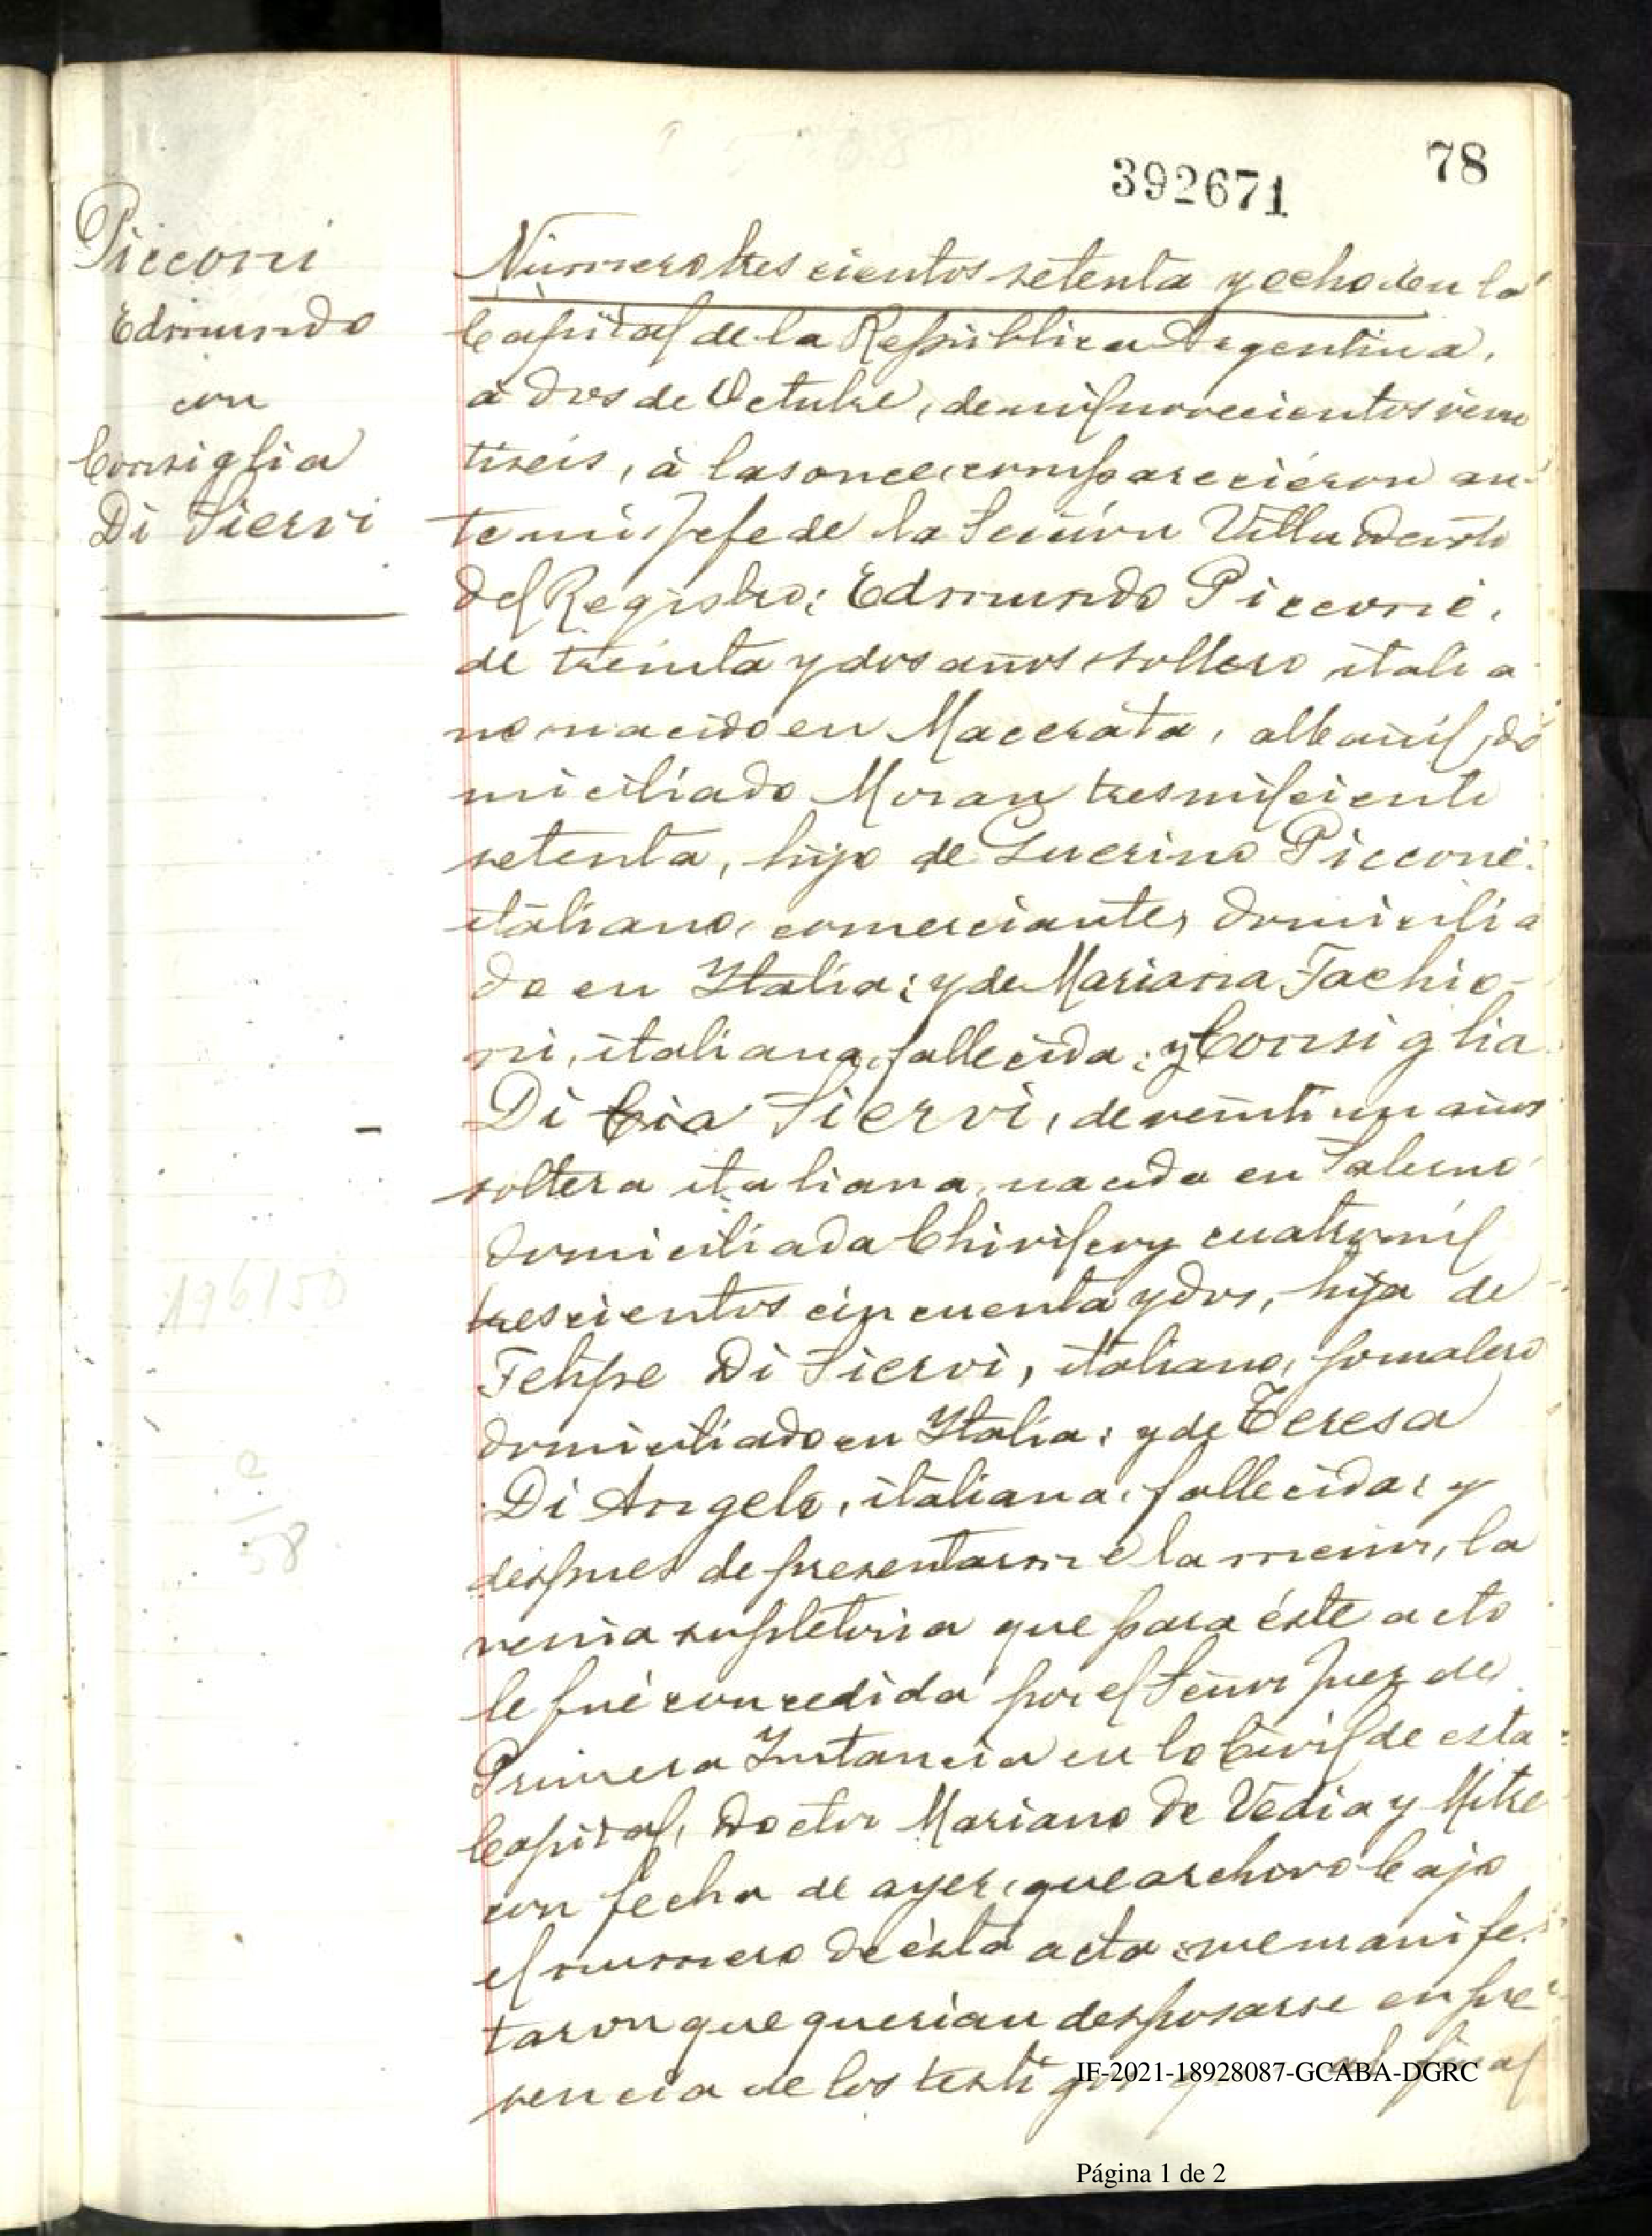 78
392671
Picconi
Edmundo
con
Consiglia
Di Siervi
Número tres cientos setenta y ocho: en la
Capital de la República Argentina,
á dos de Octubre, de mil novecientos vein
tiseis, á las once, compareciéron an-
te mi, Jefe de la Sección Villa Devoto
del Registro: Edmundo Picconi,
de treinta y dos años, soltero, italia
no, nacido en Macerata, albañil, do
miciliado Moran tres mil ciento
setenta, hijo de Guerino Picconi,
italiano, comerciante, domicilia
do en Italia: y de Mariana Fachio-
ni, italiana, fallecida: y Consiglia
Di Cia Siervi, de veintiun años
soltera, italiana, nacida en Salerno
domiciliada Chivilcoy cuatro mil
trescientos cincuenta y dos, hija de
Felipe Di Siervi, italiano, jornalero
domiciliado en Italia: y de Teresa
Di Angelo, italiana, fallecida: y
despues de presentarme la menor, la
venia supletoria que para éste acto
le fué concedida por el Señor Juez de
Primera Instancia en lo Civil de esta
Capital, Doctor Mariano de Vedia y Mitre
con fecha de ayer, que archivo bajo
el numero de ésta acta, me manifes-
taron que querian desposarse en pre
sencia de los testigos que al final
196150
2
58
IF-2021-18928087-GCABA-DGRC
Página 1 de 2